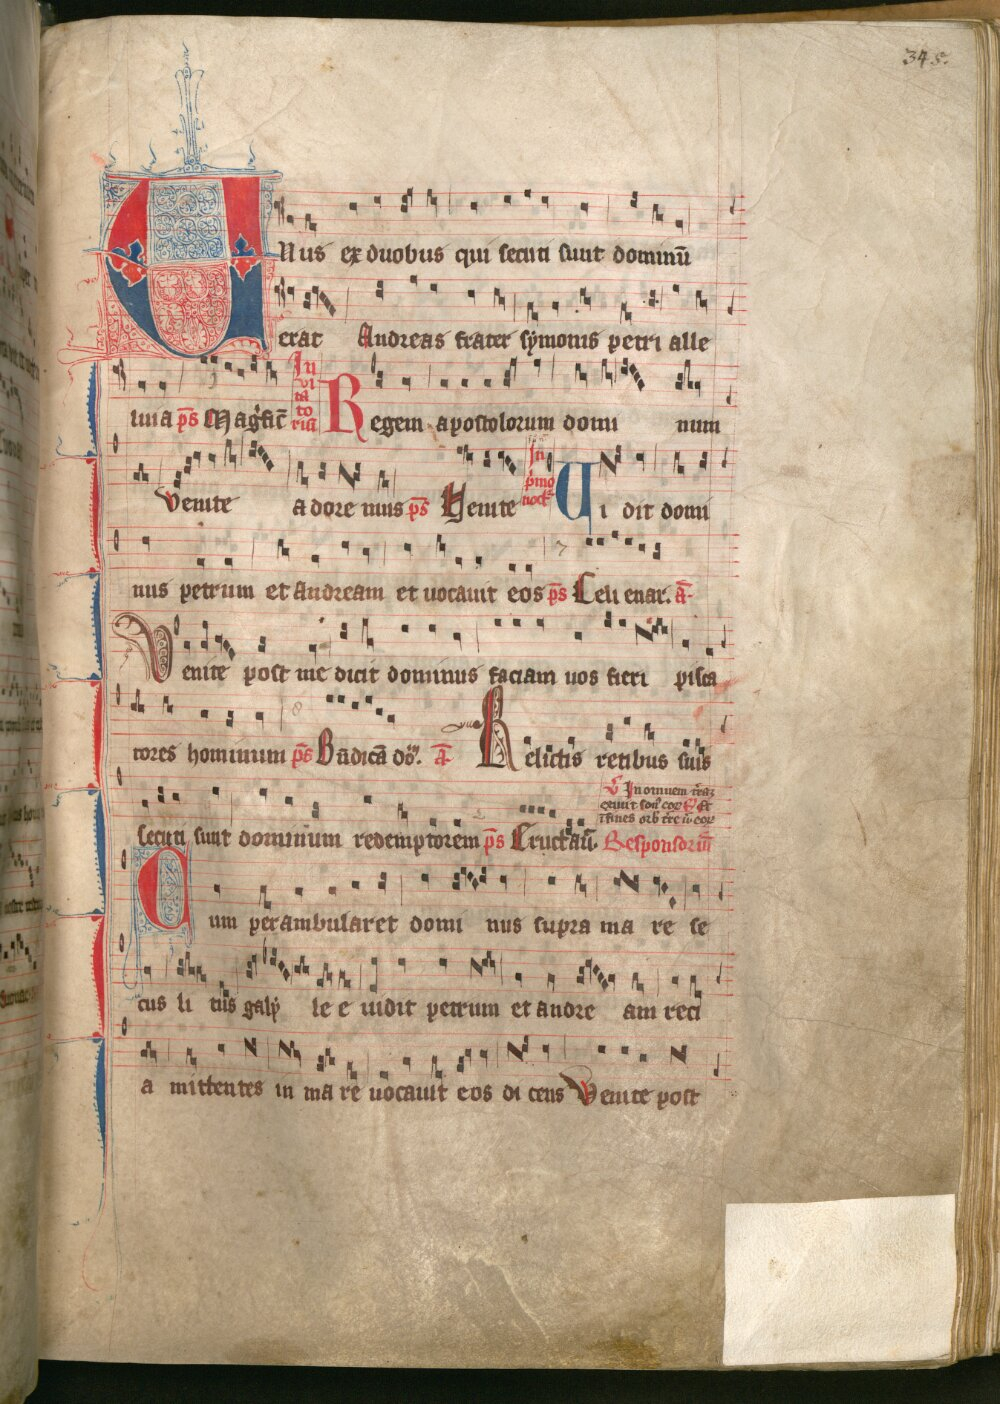 345.
Unus ex duobus qui secuti sunt dominū
erat Andreas frater symonis petri alle
luia ps Magn̄ic̄ In vi ta to riū Regem apostolorum domi num
Venite adore mus ps Venite In pͥmo noct̄ Ui dit domi
nus petrum et andream et uocauit eos ps Celi enar. a̅
Venite post me dicit dominus faciam uos fieri pisca
tores hominum ps Bn̄dicā a̅ Relictis retibus suis
V In omnem trā
exiuit son̄ eoꝝ Et
ī fines orb tre
secuti sunt dominum redemptorem ps Eructāū. Responsoriū
Cum perambularet domi nus supra ma re se
cus li tus galy le e uidit petrum et andre am reci
a mittentes in ma re uocauit eos di cens Venite post